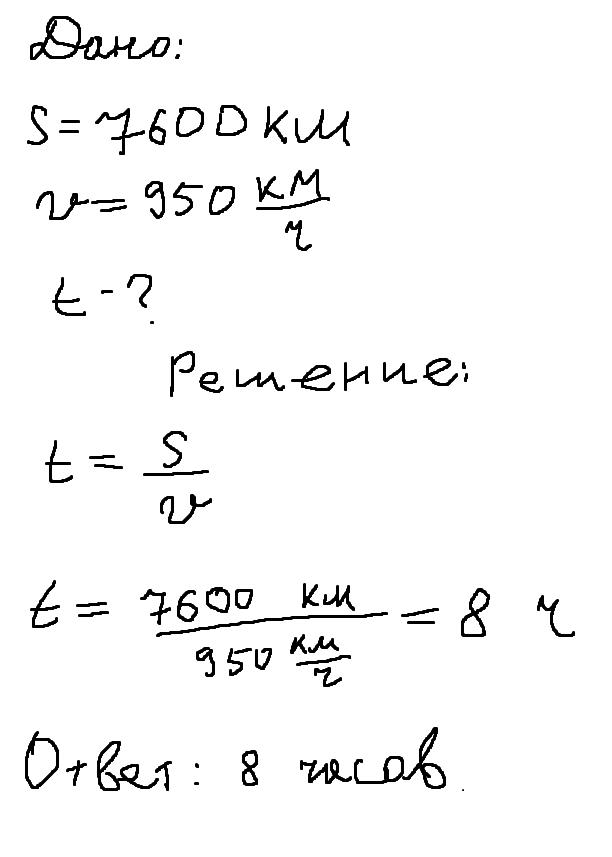 Дано:
S = 7600 км
v = 950 км/ч
t - ?
Решение:
t = S/v
t = 7600 км / 950 км/ч = 8 ч
Ответ: 8 часов.